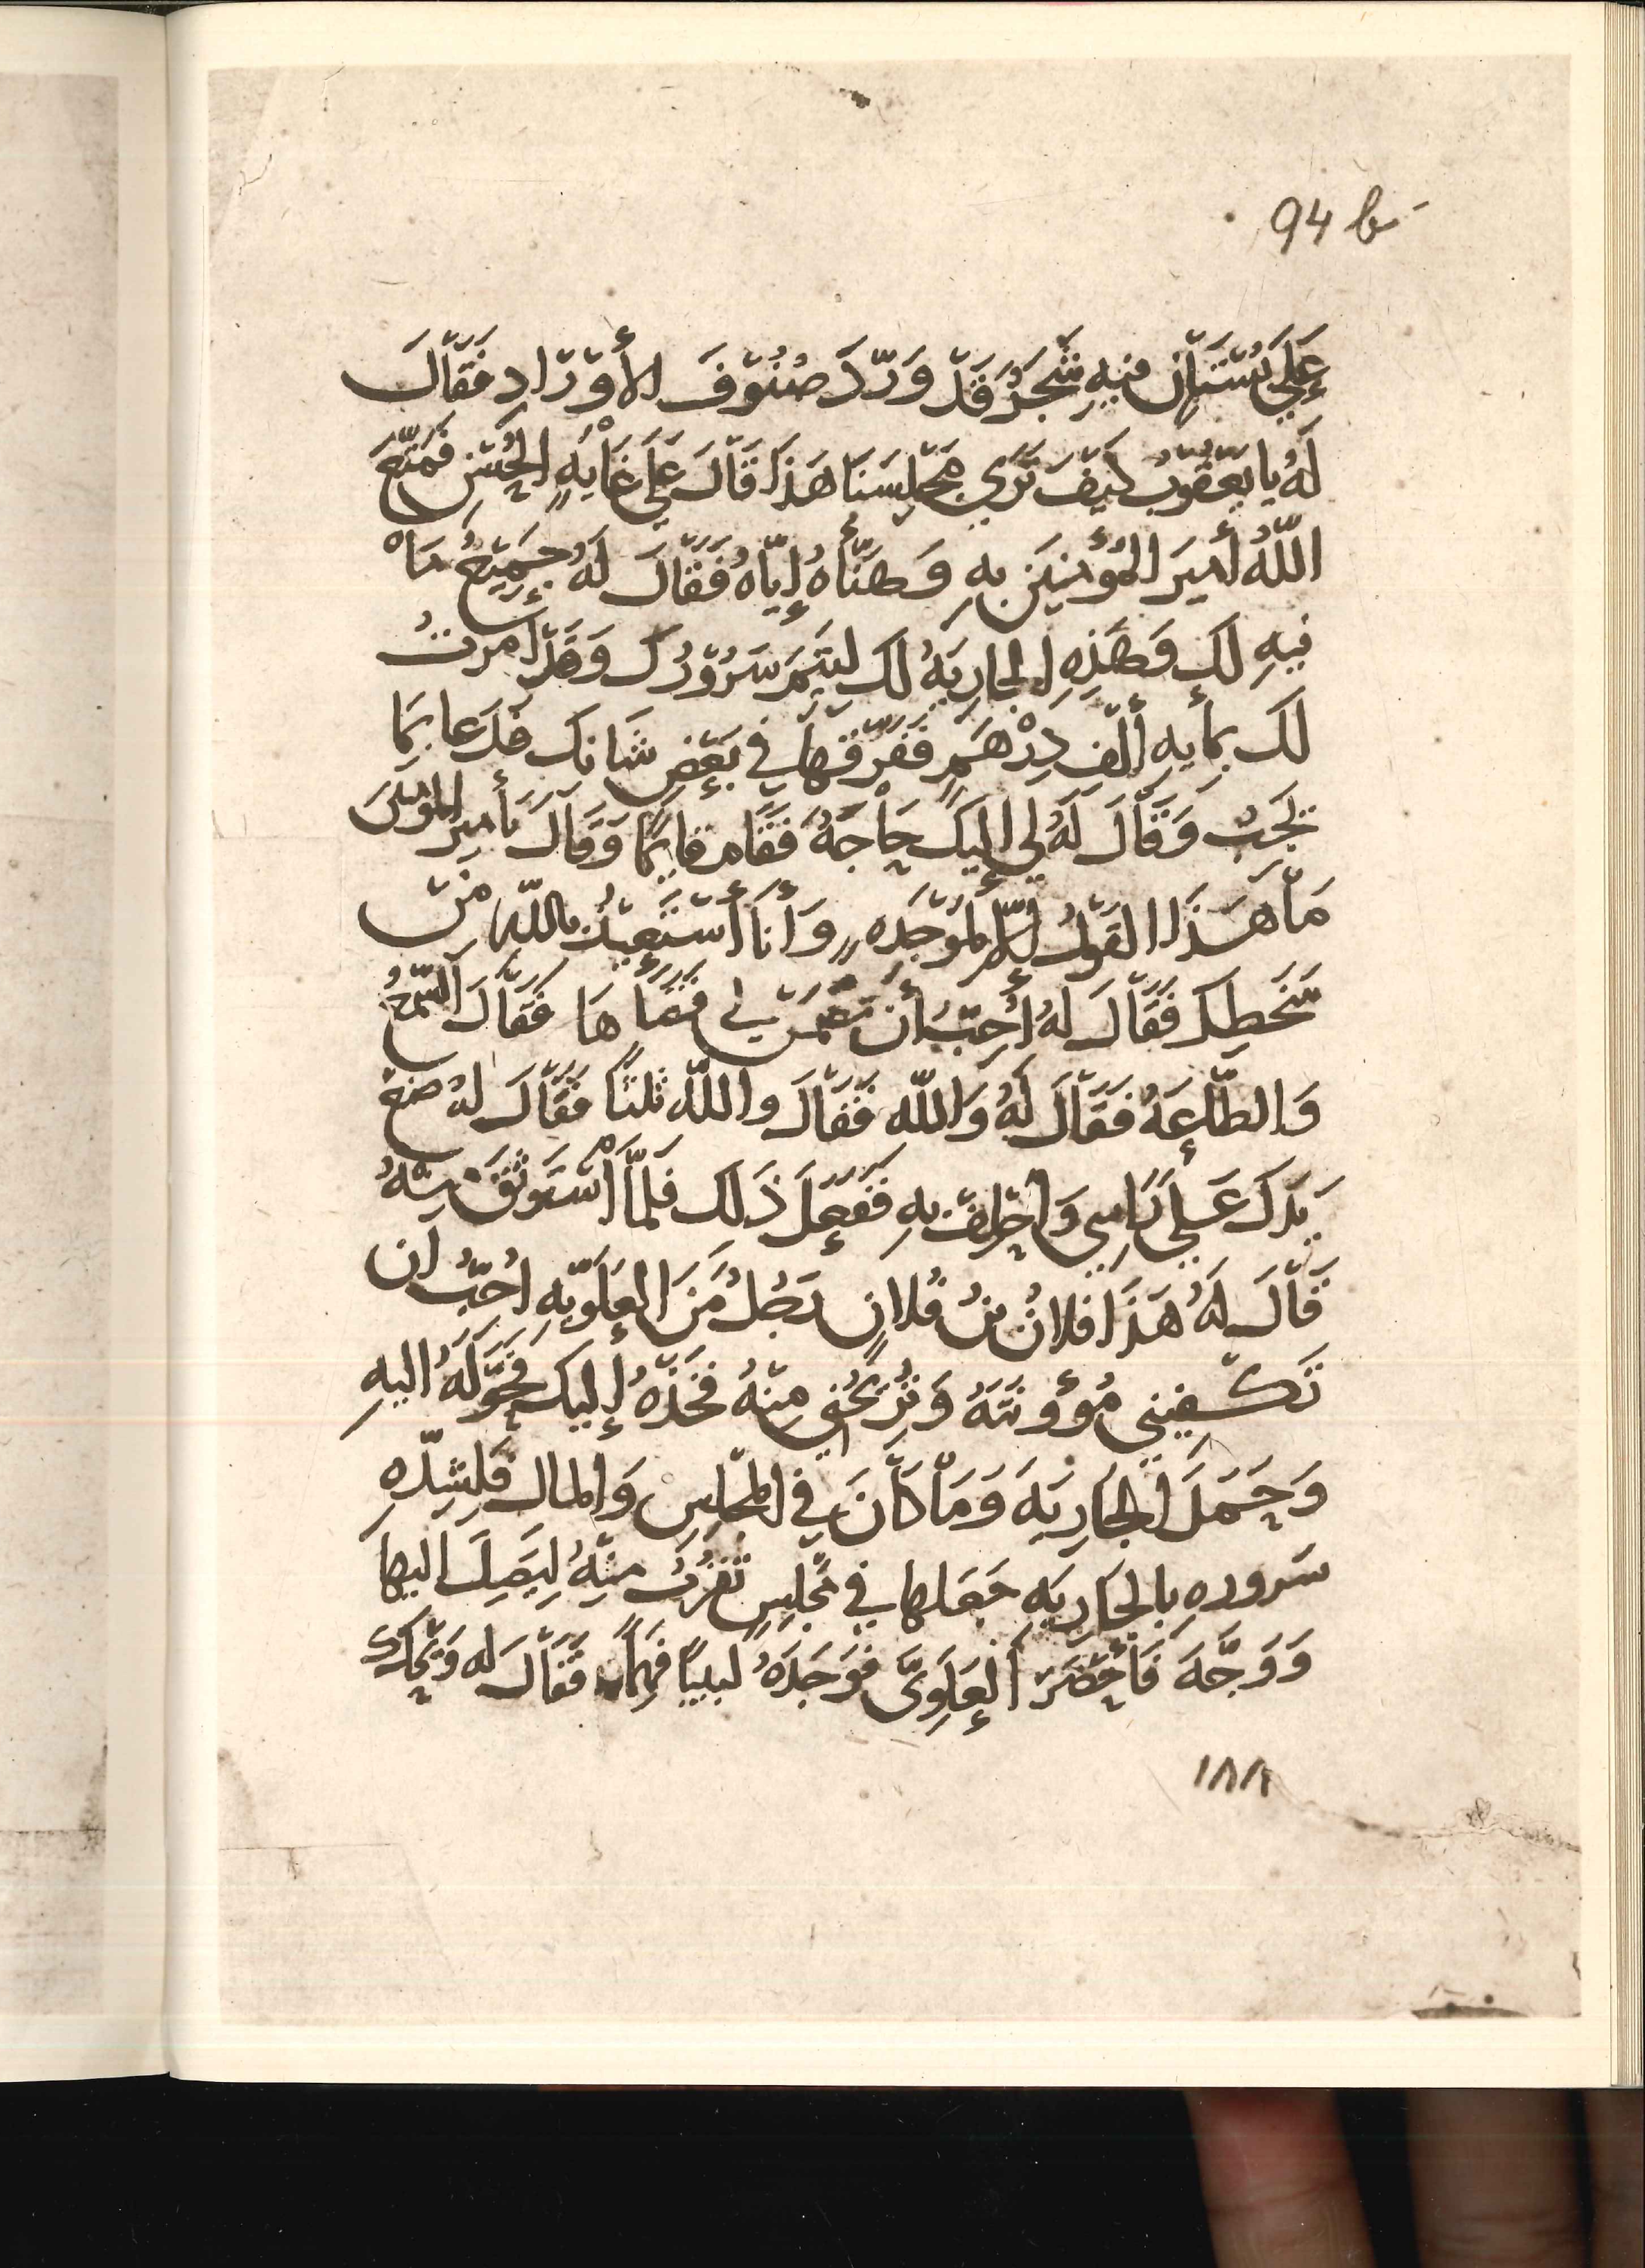 94 b
عَلَى بُسْتَانٍ فِيهِ شَجَرٌ قَدْ وَرَّدَ صُنُوْفَ الأَوْرَادِ فَقَالَ
لَهُ يَا يَعْقُوبُ كَيْفَ تَرَى مَجْلِسَنَا هَذَا قَالَ عَلَى غَايَةِ الحُسْنِ فَمَتَّعَ
اللّهُ أَمِيرَ المُؤْمِنِينَ بِهِ وَهَنَّأَهُ إِيَّاهُ فَقَالَ لَهُ جَمِيْعُ مَا
فِيهِ لَكَ وَهَذِهِ الجَارِيَةُ لَكَ لِيَتِمَّ سُرُوْرُكَ وَقَدْ أَمَرْتُ
لَكَ بِمِأَيَةِ أَلْفِ دِرْهَمٍ فَفَرِّقْهَا فِي بَعْضِ شَانِكَ فَدَعَا بِمَا
يَجِبُ وَقَالَ لَهُ لِي إِلَيْكَ حَاجَةٌ فَقَامَ قَايِمًا وَقَالَ يَأَمِيرَ المُؤْمِنِينَ
مَا هَذَا القَوْلُ إِلّا لِمَوْجِدَةٍ وَأَنَا أَسْتَعِيْذُ بِاللّهِ مِنْ
سَخَطِكَ فَقَالَ لَهُ أُحِبُّ أَنْ تَضْمَنَ لِي قَضَاهَا فَقَالَ السَّمْعُ
وَالطَّاعَةُ فَقَالَ لَهُ وَاللّهِ فَقَالَ وَاللّهِ ثَلثًا فَقَالَ لَهُ ضَعْ
يَدَكَ عَلَى رَاسِي وَاحْلِفْ بِهِ فَفَعَلَ ذَلِكَ فَلَمَّا اسْتَوْثَقَ مِنْهُ
قَالَ لَهُ هَذَا فلانُ بْنُ فُلانٍ رَجُلٌ مِنَ العَلَوِيَّةِ أُحِبُّ أَن
تَكْفِيَنِي مُؤْونَتَهُ وَتُرِيْحُنِي مِنْهُ فَخُذْهُ إِلَيْكَ فَحَوَّلَهُ إِلَيْهِ
وَحَمَلَ الجَارِيَةَ وَمَا كَانَ فِي المَجْلِسِ وَالمَالَ فَلِشِدَّةِ
سُرورِهِ بِالجَارِيَةِ جَعَلَهَا فِي مَجْلِسٍ تَقْرُبُ مِنْهُ لِيَصِلَ إِلَيْهَا
وَوَجَّهَ فَأَحْضَرَ العَلَوِيَّ فَوَجَدَهُ لَبِيبًا فَهِمًا فَقَالَ لَه وَيْحَكَ
١٨٨